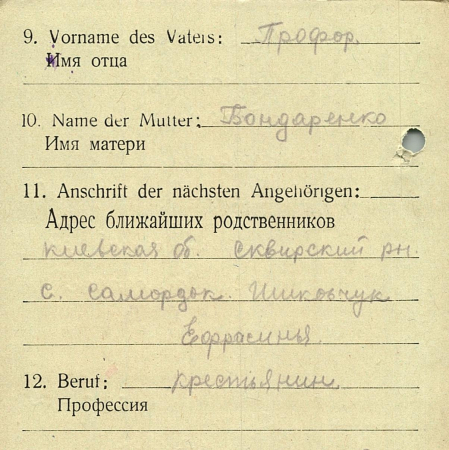 9. Vorname des Vaters: Профор.
Имя отца
10. Name der Mutter: Бондаренко
Имя матери
11. Anschrift der nächsten Angehörigen:
Адрес ближайших родственников
Киевская об. Сквирский рн.
с. Самордок. Ишковчук
Ефрасинья
12. Beruf: крестьянин
Профессия